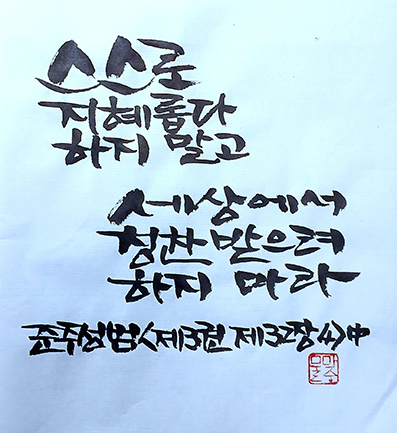 스스로
지혜롭다
하지 말고
세상에서
칭찬 받으려
하지 마라
준주성범<제3권 제32장 4>中